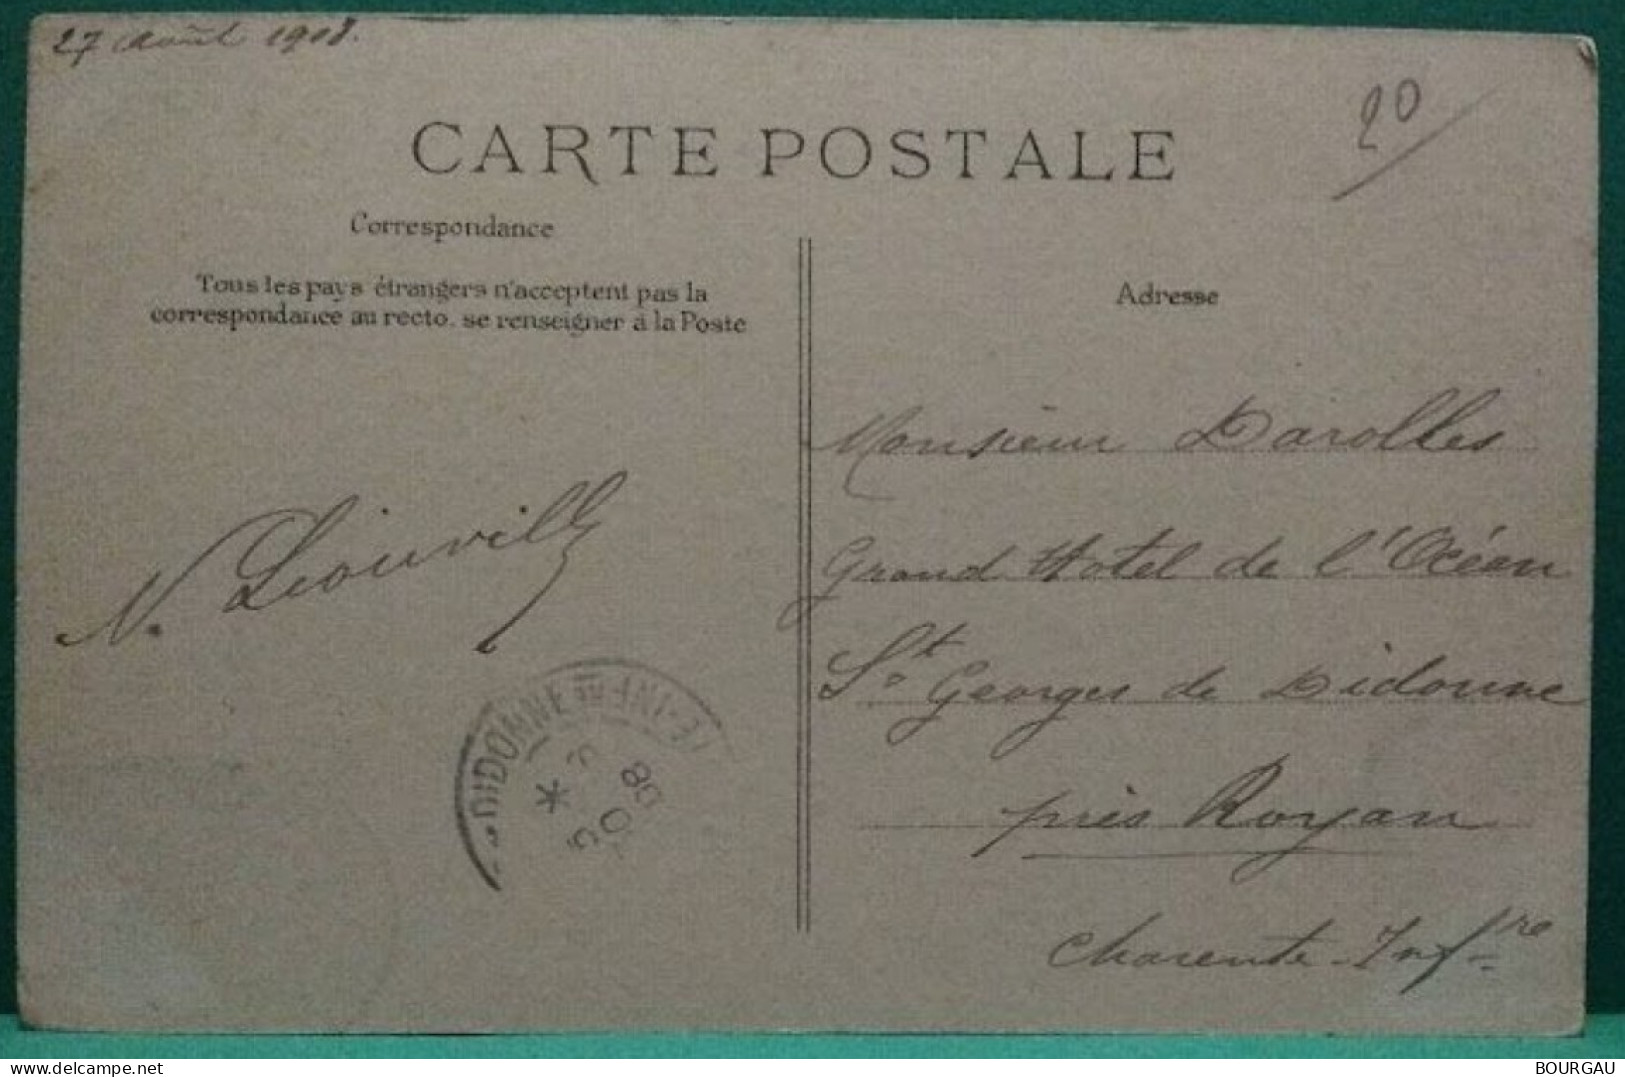 27 Août 1908.
20
CARTE POSTALE
Correspondance
Tous les pays étrangers n'acceptent pas la
correspondance au recto, se renseigner à la Poste
Adresse
N. Liouville
Monsieur Darolles
Grand Hotel de l'Océan
St Georges de Didonne
près Royan
Charente-Infre
DIDONNE
08
delcampe.net
BOURGAU